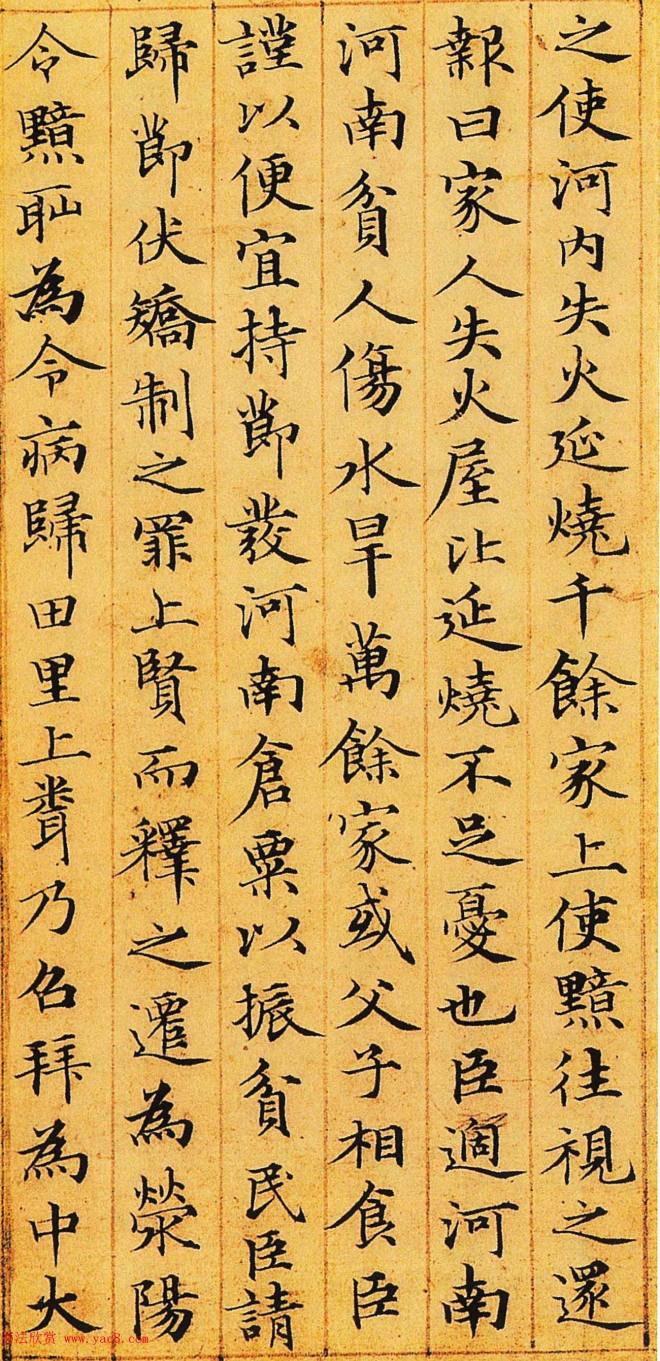 之使河内失火延燒千餘家上使黯往視之還
報曰家人失火屋比延燒不足憂也臣適河南
河南貧人傷水旱萬餘家或父子相食臣
謹以便宜持節發河南倉粟以振貧民臣請
歸節伏矯制之罪上賢而釋之遷為滎陽
令黯耻為令病歸田里上聞乃召拜為中大
书法欣赏 www.yac8.com